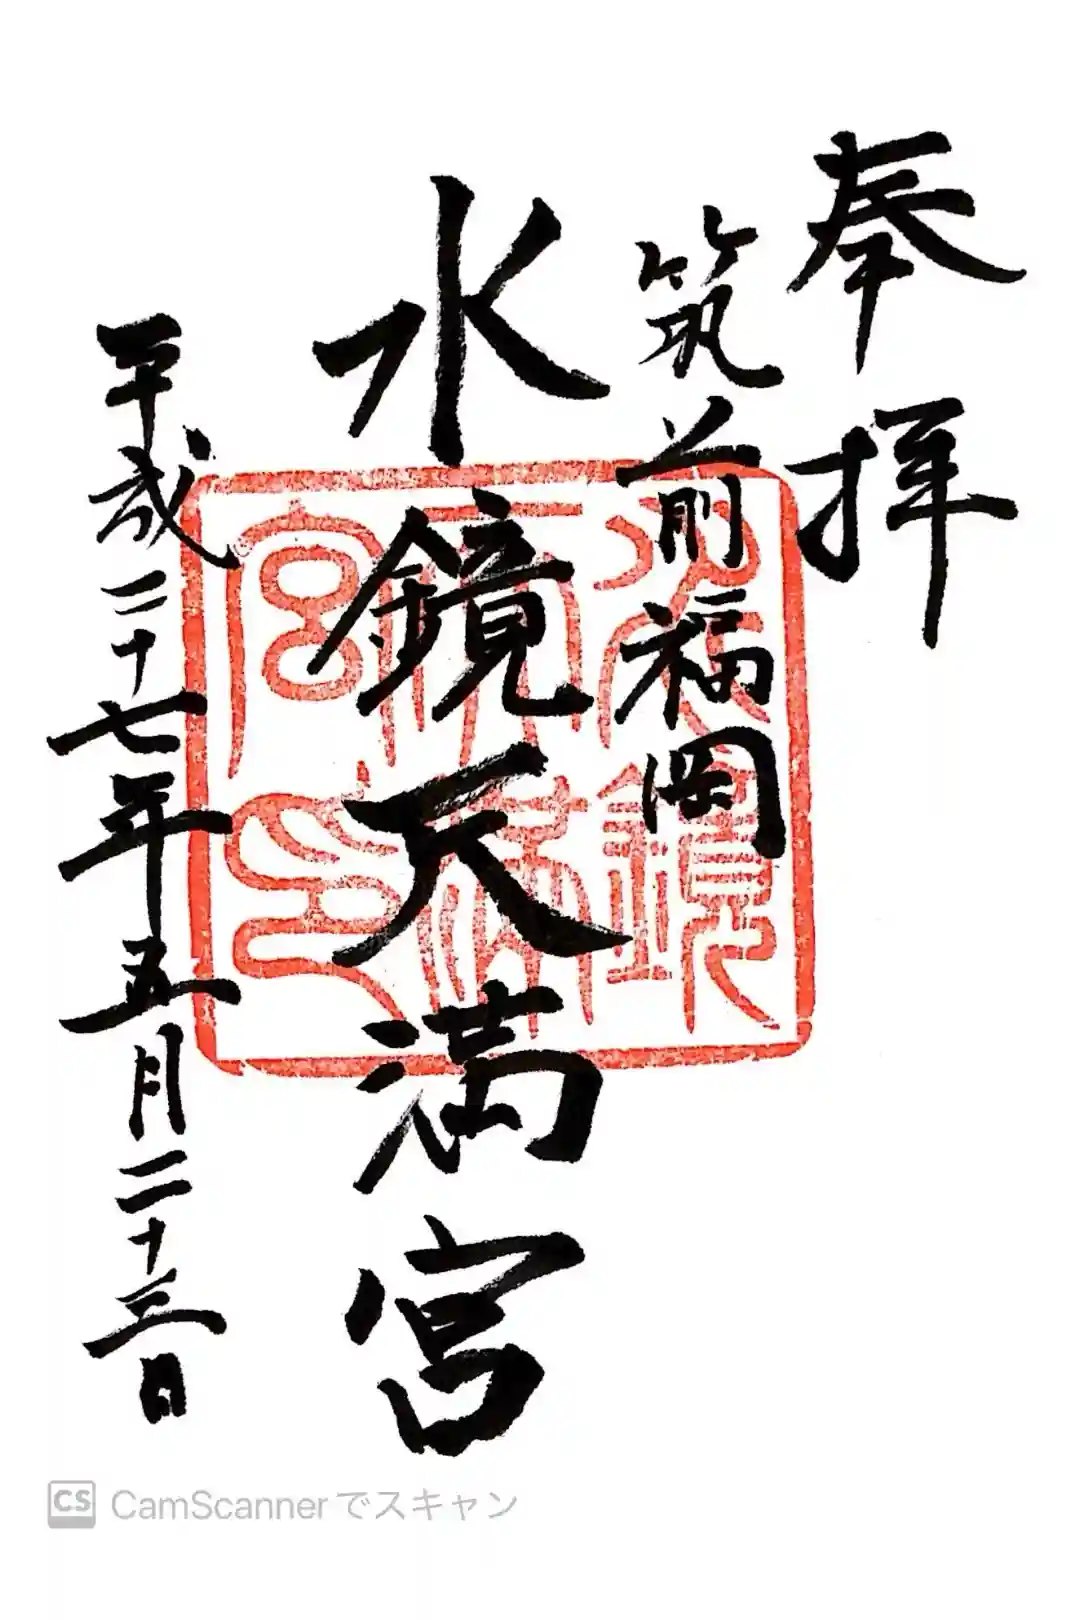 奉拝
筑前福岡
水鏡天満宮
平成二十七年五月二十三日
水鏡
天満
宮印
CS CamScannerでスキャン